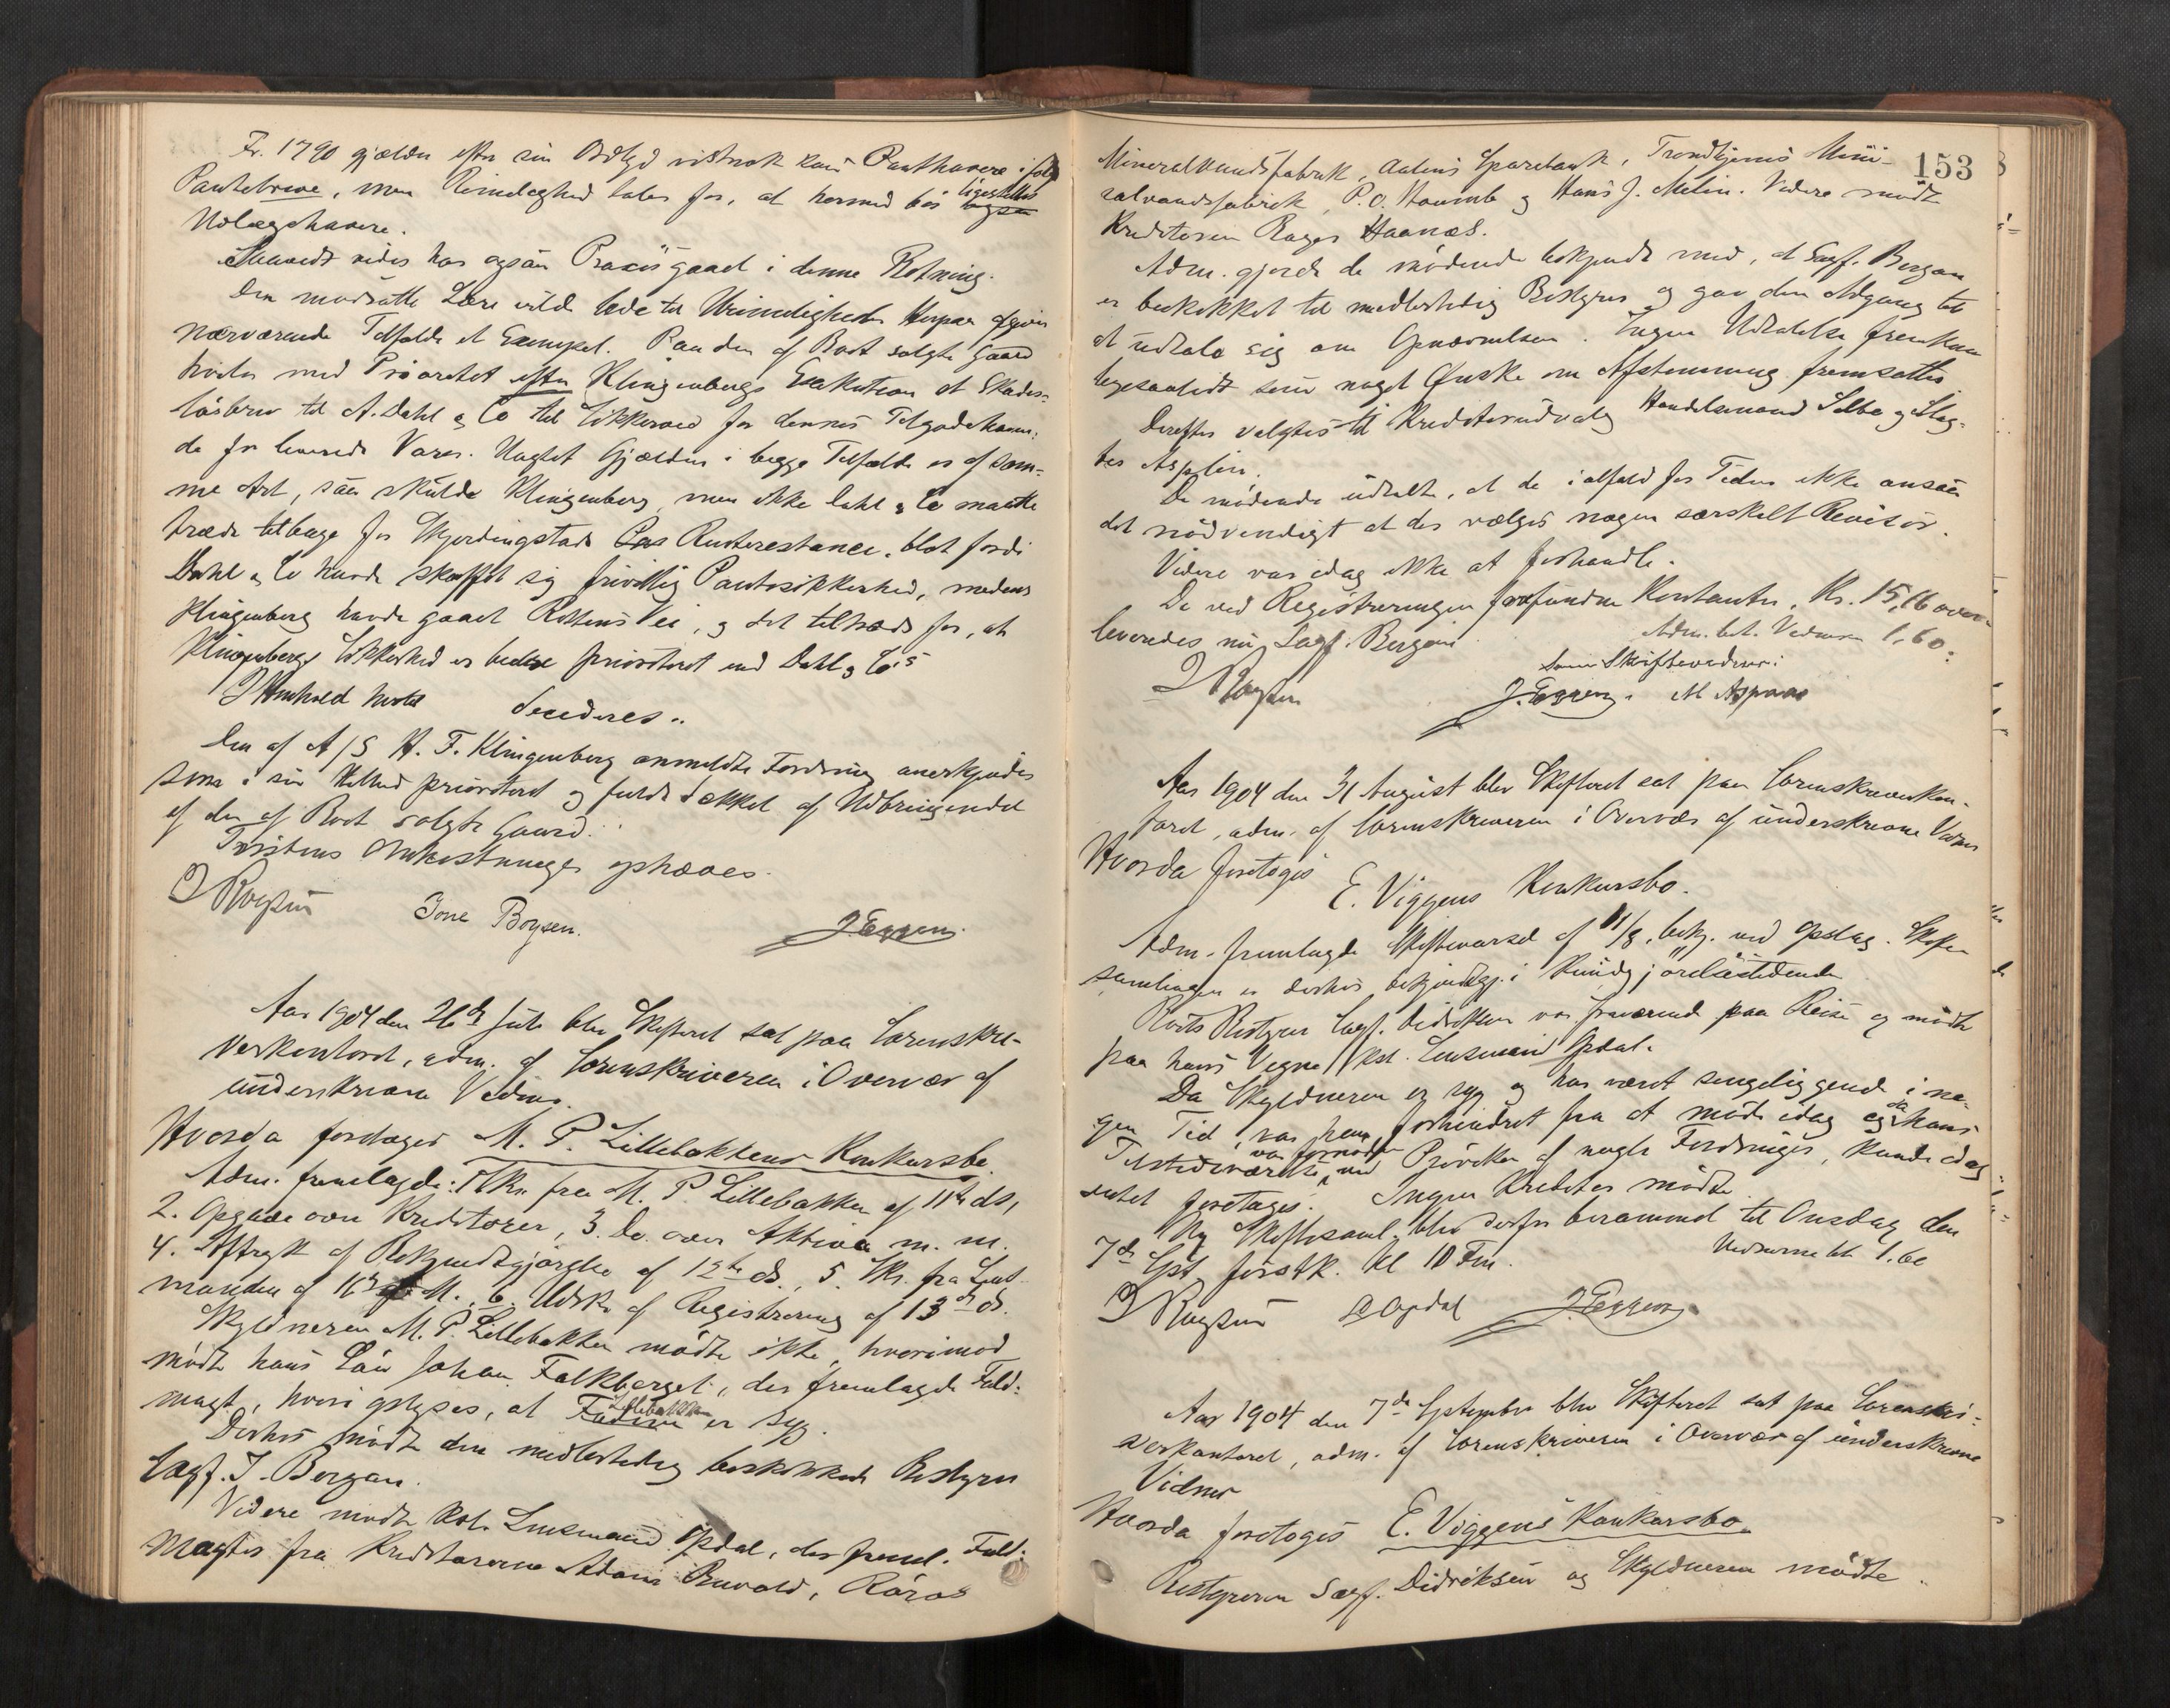 Fr. 1790 gjælder efter sin Ordlyd vistnok kun Panthavere ifølge
Pantebreve, men Rimelighed taler for, at hermed bør ligestilles
Udlægshavere.
Saavidt vides har ogsaa Praxis gaaet i denne Retning.
Den modsatte Lære vilde lede til Urimeligheder. Herpaa afgiver
nærværende Tilfælde et Exempel. Paa den af Boet solgte Gaard
hviler med Prioritet efter Klingenbergs Exekution et Skades-
løsbrev til A. Dahl & Co til Sikkerhed for dennes Tilgodehaven-
de for leverede Varer. Uagtet Gjælden i begge Tilfælde er af sam-
me Art, saa skulde Klingenberg, men ikke Dahl & Co maatte
træde tilbage for Skjerdingstads Renterestance, blot fordi
Dahl & Co havde skaffet sig frivillig Pantesikkerhed, medens
Klingenberg havde gaaet Rettens Vei, og det tiltrods for, at
Klingenbergs Sikkerhed er bedre prioriteret end Dahl & Co's
I Henhold hertil
decideres:
Den af A/S H. F. Klingenberg anmeldte Fordring anerkjendes
som i sin Helhed prioriteret og fuldt dækket af Udbringendet
af den af Boet solgte Gaard.
Tvistens Omkostninger ophæves.
Tore Boysen. J. Eggen.
Aar 1904 den 26de Juli blev Skifteret sat paa Sorenskri-
verkontoret, adm. af Sorenskriveren i Overvær af
underskrevne Vidner.
Hvorda foretoges M. P. Lillebakkens Konkursbo.
Adm. fremlagde: 1 Skr. fra M. P. Lillebakken af 11te ds,
2. Opgave over Kreditorer, 3. Do. over Aktiva m. m.
4. Aftryk af Bekjendtgjørelse af 12te ds., 5. Skr. fra Lens-
manden af M., 6. Udskr. af Registrering af 13de ds.
Skyldneren M. P. Lillebakken mødte ikke, hvorimod
mødte hans Søn Johan Falkberget, der fremlagde Fuld-
magt, hvori oplyses, at Lillebakken er syg.
Derhos mødte den midlertidig beskikkede Bestyrer
Sagf. I. Bergan.
Videre mødte Kst. Lensmand Opdal, der freml. Fuld-
magter fra Kreditorerne Adam Buvold, Røros
153
Mineralvandsfabrik, Aalens Sparebank, Trondhjems Mine-
ralvandsfabrik, P. O. Haumb og Hans J. Melin. Videre mødte
Kreditoren Roger Haanæs.
Adm. gjorde de mødende bekjendt med, at Sagf. Bergan
er beskikket til midlertidig Bestyrer og gav dem Adgang til
at udtale sig om Opnævnelsen. Ingen Udtalelse fremkom
ligesaalidt som noget Ønske om Afstemning fremsattes.
Derefter valgtes til Kreditorudvalg Handelsmand Selbo og Slag-
ter Asplin.
De mødende udtalte, at de ialfald for Tiden ikke ansaa
det nødvendigt at der vælges nogen særskilt Revisor.
Videre var idag ikke at forhandle.
De ved Registreringen forefundne Kontanter, Kr. 15,16 over-
leveredes nu Sagf. Bergan.
Adm. bet. Vidnerne 1,60.
Som Skiftevidner:
J. Eggen. M Aspaas
Aar 1904 den 31 August blev Skifteret sat paa Sorenskriverkon-
toret, adm. af Sorenskriveren i Overvær af underskrevne Vidner
Hvorda foretoges
E. Viggens Konkursbo.
Adm. fremlagde Skiftevarsel af 11/8, bekj. ved Opslag. Skifte-
samlingen er derhos bekjendtgj. i Kundgjørelsestidende
Boets Bestyrer Sagf. Didriksen var fraværende paa Reise og mødte
paa hans Vegne Kst. Lensmand Opdal.
Da Skyldneren er syg og har været sengeliggende i no-
gen Tid, var han forhindret fra at møde idag og da hans
Tilstedeværelse var fornøden ved Prøvelse af nogle Fordringer, kunde idag
intet foretages. Ingen Kreditor mødte.
Ny Skiftesaml. blev derfor berammet til Onsdag den
7de Spt. førstk. kl 10 Fm.
Vidnerne bet. 1.60
Opdal J. Eggen
Aar 1904 den 7de September blev Skifteret sat paa Sorenskri-
verkontoret, adm. af Sorenskriveren i Overvær af underskrevne
Vidner
Hvorda foretoges E. Viggens Konkursbo.
Bestyreren Sagf. Didriksen og Skyldneren mødte.